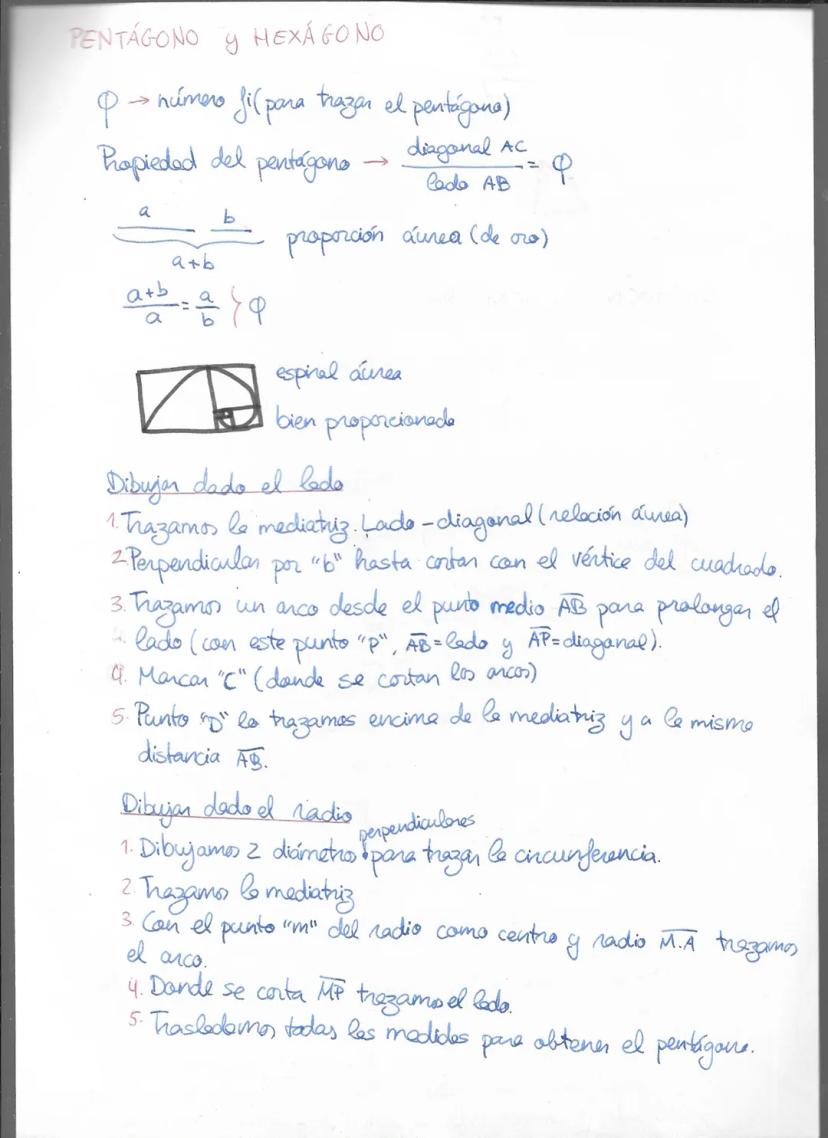 PENTÁGONO y HEXÁGONO
φ → número fi (para trazar el pentágono)
Propiedad del pentágono → diagonal AC / lado AB = φ
a b
a+b
proporción áurea (de oro)
a+b / a = a / b } φ
espiral áurea
bien proporcionada
Dibujar dado el lado
1. Trazamos la mediatriz. Lado - diagonal (relación áurea)
2. Perpendicular por "b" hasta cortar con el vértice del cuadrado.
3. Trazamos un arco desde el punto medio AB para prolongar el
lado (con este punto "P", AB = lado y AP = diagonal).
4. Marcar "C" (donde se cortan los arcos)
5. Punto "D" lo trazamos encima de la mediatriz y a la misma
distancia AB.
Dibujar dado el radio
perpendiculares
1. Dibujamos 2 diámetros para trazar la circunferencia.
2. Trazamos la mediatriz
3. Con el punto "m" del radio como centro y radio M.A trazamos
el arco.
4. Donde se corta MP trazamos el lado.
5. Trasladamos todas las medidas para obtener el pentágono.